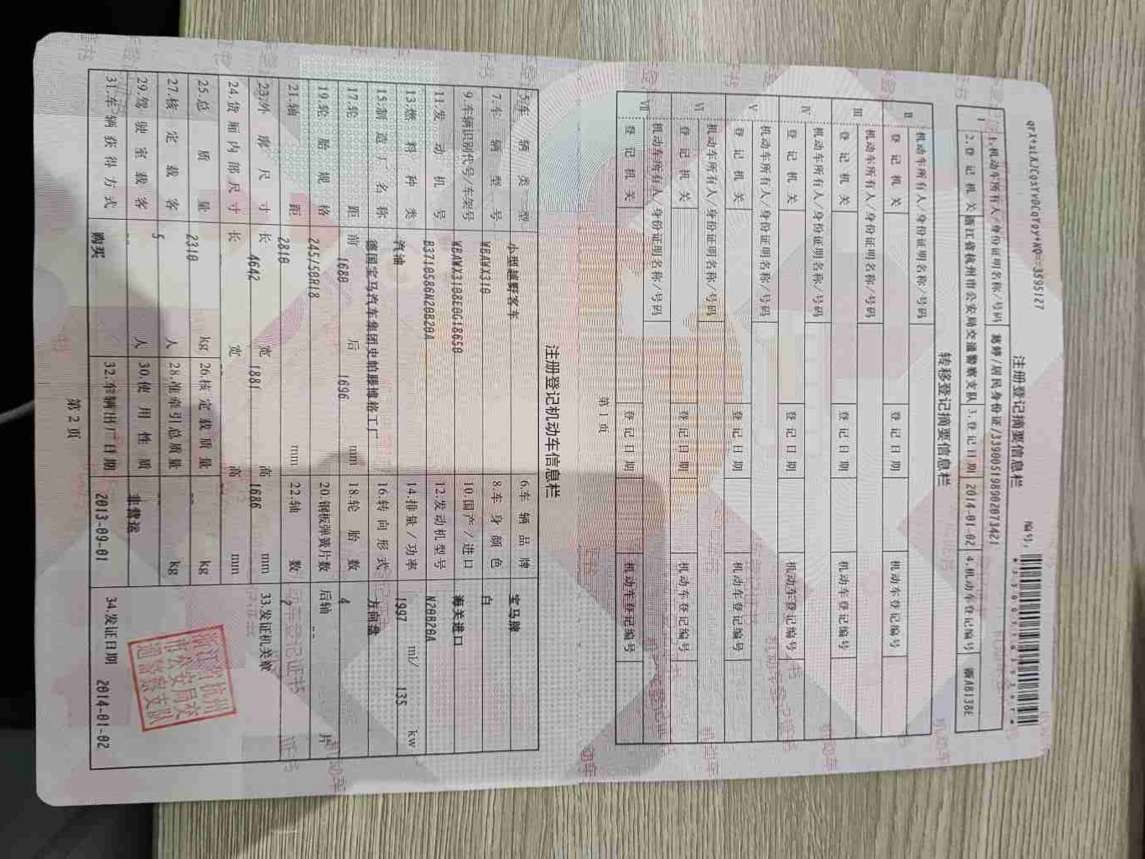 注册登记摘要信息栏
编号:
1.机动车所有人/身份证明名称/号码 葛婷/居民身份证/339005198902073421
I 2.登记机关 浙江省杭州市公安局交通警察支队 3.登记日期 2014-01-02 4.机动车登记编号 浙A8138E
转移登记摘要信息栏
II 机动车所有人/身份证明名称/号码
登记机关 登记日期 机动车登记编号
III 机动车所有人/身份证明名称/号码
登记机关 登记日期 机动车登记编号
IV 机动车所有人/身份证明名称/号码
登记机关 登记日期 机动车登记编号
V 机动车所有人/身份证明名称/号码
登记机关 登记日期 机动车登记编号
VI 机动车所有人/身份证明名称/号码
登记机关 登记日期 机动车登记编号
VII 机动车所有人/身份证明名称/号码
登记机关 登记日期 机动车登记编号
第1页
注册登记机动车信息栏
5.车辆类型 小型越野客车 6.车辆品牌 宝马牌
7.车辆型号 WBAWX310 8.车身颜色 白
9.车辆识别代号/车架号 WBAWX3108E0G18650 10.国产/进口 海关进口
11.发动机号 B3710586N20B20A 12.发动机型号 N20B20A
13.燃料种类 汽油 14.排量/功率 1997 ml/ 135 kw
15.制造厂名称 德国宝马汽车集团史帕滕堡格工厂 16.转向形式 方向盘
17.轮距 前 1680 后 1696 mm 18.轮胎数 4
19.轮胎规格 245/50R18 20.钢板弹簧片数 后轴 -- 片
21.轴距 2810 mm 22.轴数 2
23.外廓尺寸 长 4642 宽 1881 高 1686 mm 33.发证机关章
24.货厢内部尺寸 长 宽 高 mm
25.总质量 2310 kg 26.核定载质量 -- kg
27.核定载客 5 人 28.准牵引总质量 -- kg
29.驾驶室载客 -- 人 30.使用性质 非营运
31.车辆获得方式 购买 32.车辆出厂日期 2013-09-01 34.发证日期 2014-01-02
第2页